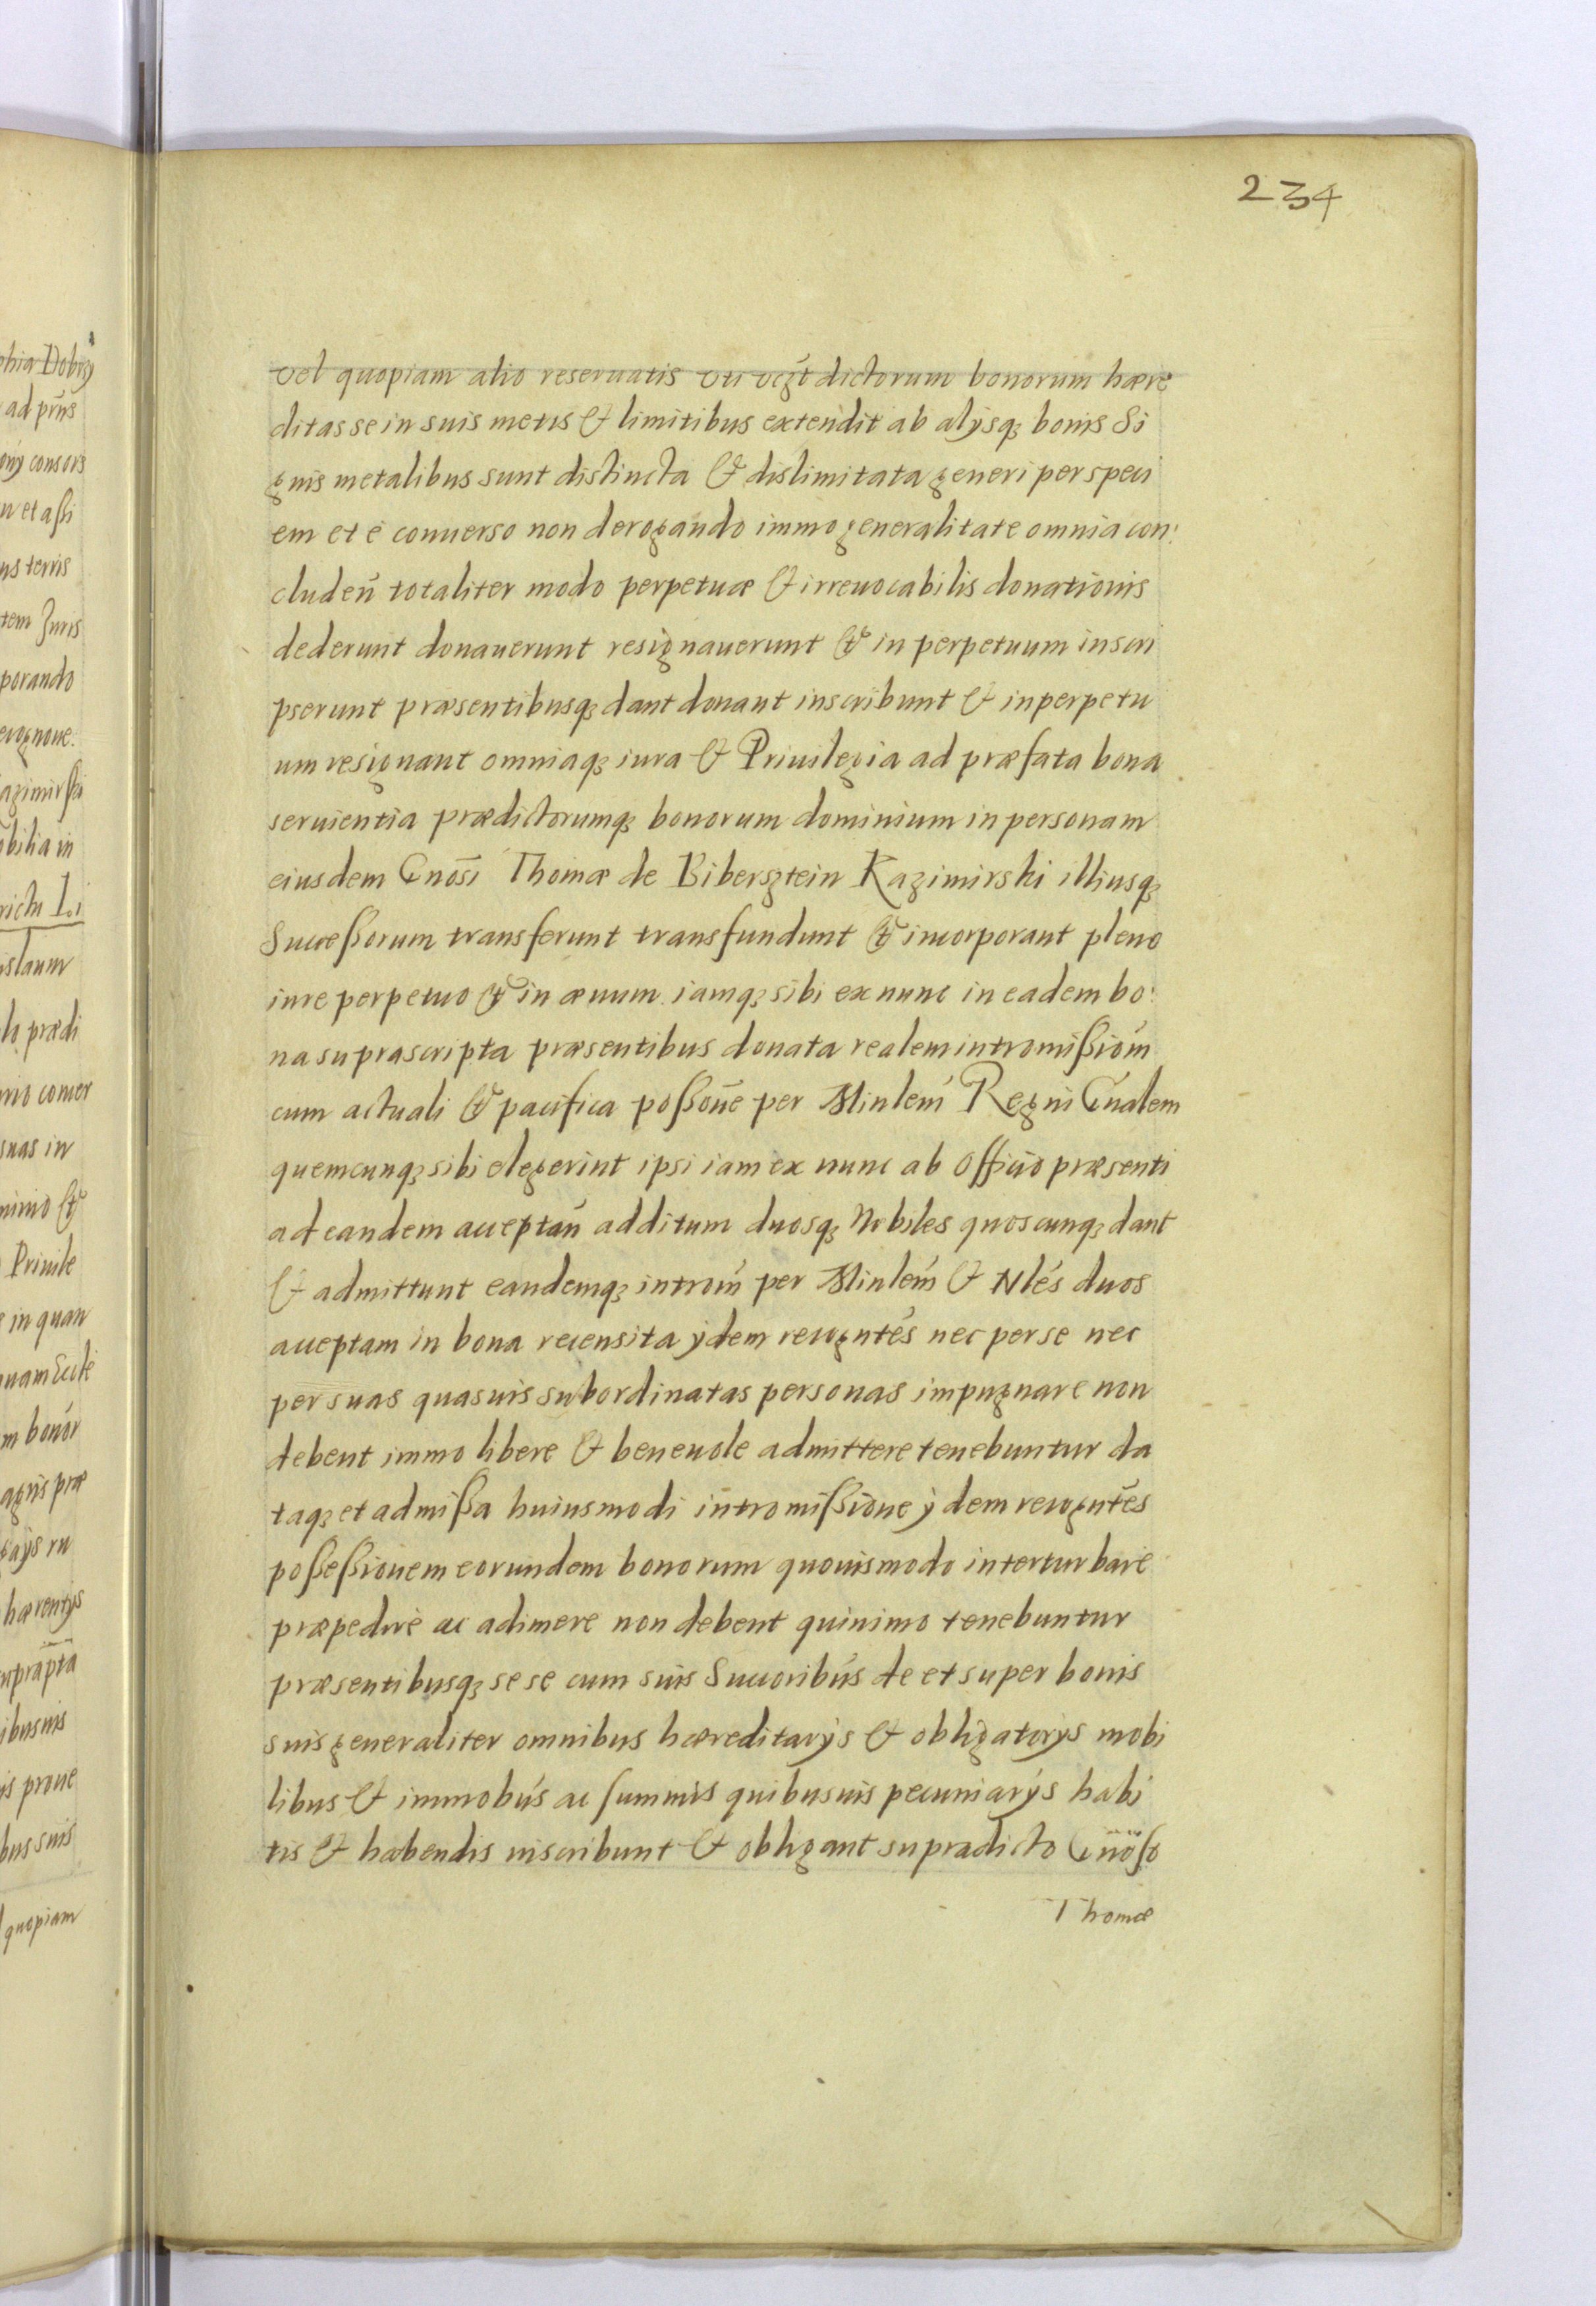 234
vel quopiam alio reseruatis vti dictorum bonorum hære
ditas se in suis metis & limitibus extendit ab alÿsq3 bonis Si
gnis metalibus sunt distincta & dislimitata generi per speci
em et é conuerso non derogando immo generalitate omnia con:
cluden̄ totaliter modo perpetuæ & irreuocabilis donationis
dederunt donauerunt resignauerunt & in perpetuum inscri
pserunt præsentibusq3 dant donant inscribunt & inperpetu
um resignant omniaq3 iura & Priuilegia ad præfata bona
seruientia prædictorumq3 bonorum dominium in personam
eiusdem Gnosī Thomæ de Bibersztein Kazimirski illiusq3
Successorum transferunt transfundunt & incorporant pleno
iure perpetuo & in æuum iamq3 sibi ex nunc in eadem bo:
na suprascripta præsentibus donata realem intromissióm
cum actuali & pacifica possōne per Minlém Regni Gnalem
quemcunq3 sibi elegerint ipsi iam ex nunc ab Officio præsenti
ad eandem acceptan̄ additum duosq3 Nobiles quoscunq3 dant
& admittunt eandemq3 introm̄ per Minlém & Nlés duos
acceptam in bona recensita ÿdem recogntés nec per se nec
per suas quasuis subordinatas personas impugnare non
debent immo libere & beneuole admittere tenebuntur da
taq3 et admissa huiusmodi intromissione ÿdem recogntés
possessionem eorundem bonorum quouismodo interturbare
præpedire ac adimere non debent quinimo tenebuntur
præsentibusq3 sese cum suis Succoribús de et super bonis
suis generaliter omnibus hæreditarÿs & obligatorÿs mobi
libus & immobús ac summis quibusuis pecuniarÿs habi
tis & habendis inscribunt & obligant supradicto Gnōso
Thomæ